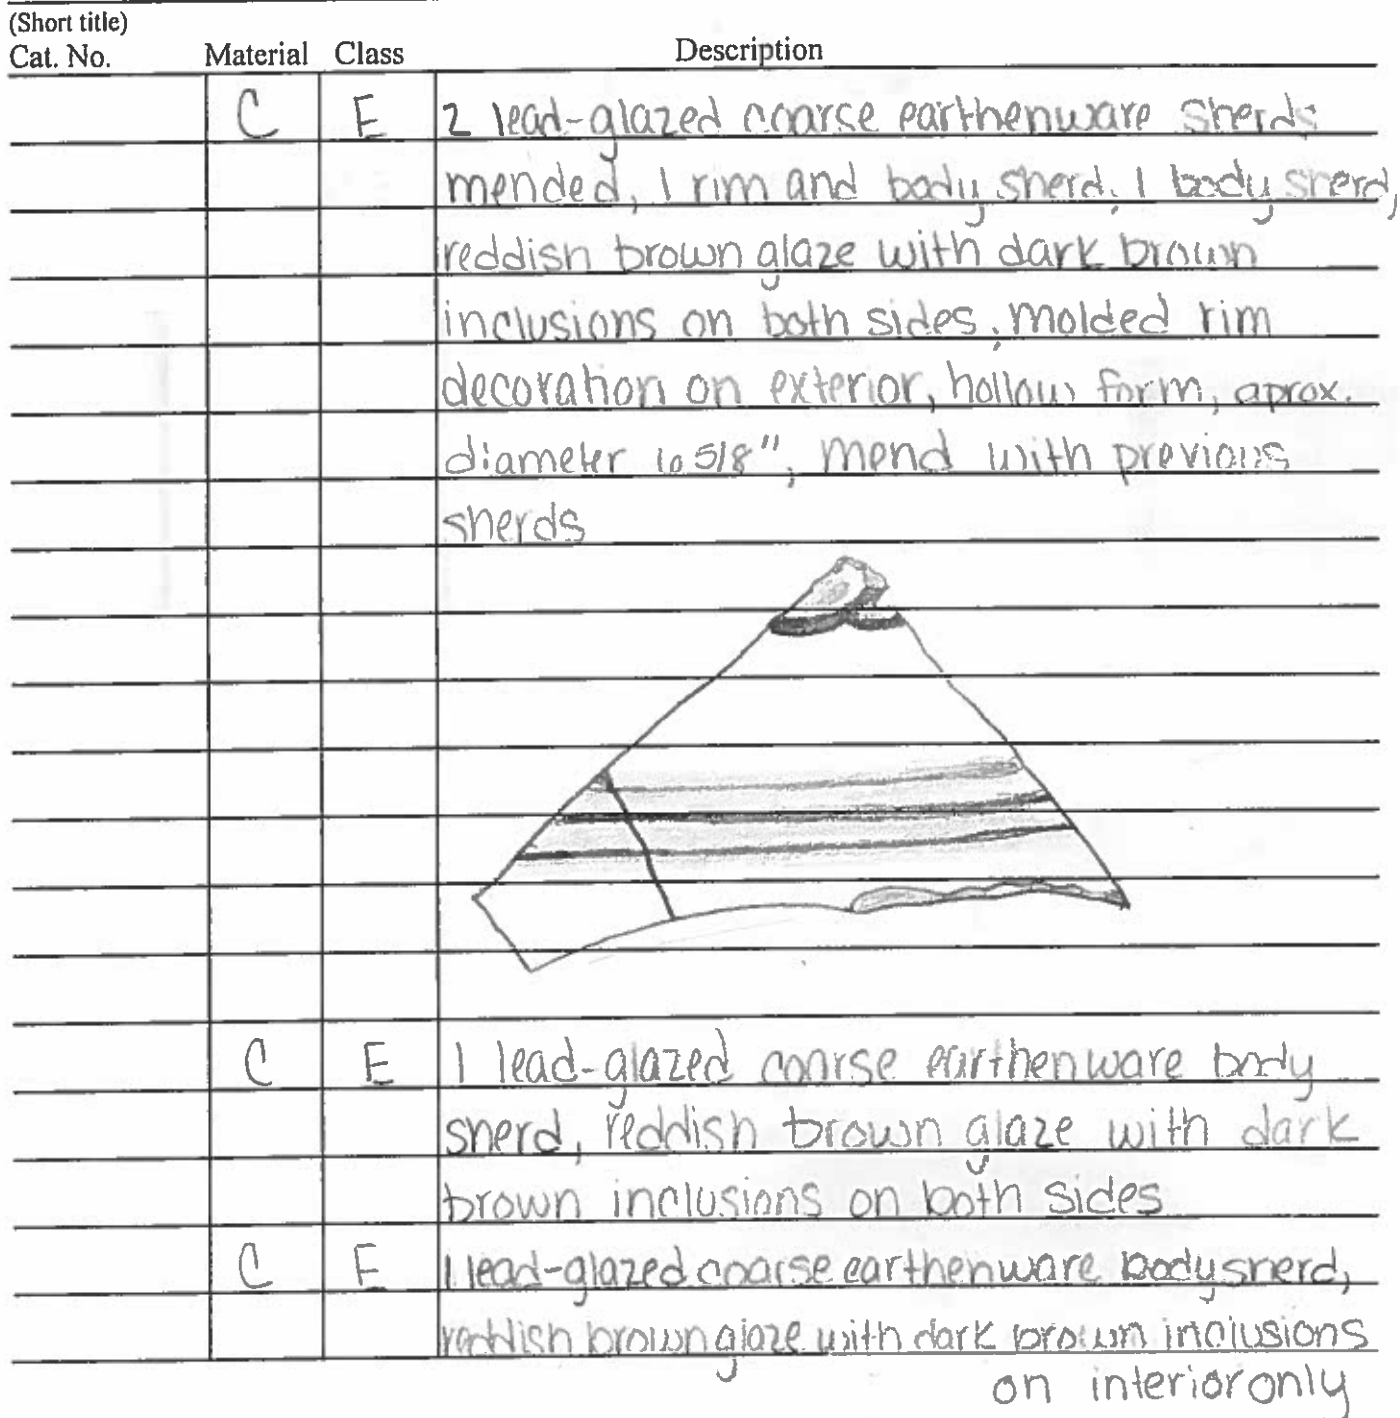 (Short title)
Cat. No. Material Class Description
C E 2 lead-glazed coarse earthenware sherds
mended, 1 rim and body sherd, 1 body sherd,
reddish brown glaze with dark brown
inclusions on both sides, molded rim
decoration on exterior, hollow form, aprox.
diameter 6 5/8", mend with previous
sherds
C E 1 lead-glazed coarse earthenware body
sherd, reddish brown glaze with dark
brown inclusions on both sides
C E 1 lead-glazed coarse earthenware body sherd,
reddish brown glaze with dark brown inclusions
on interior only